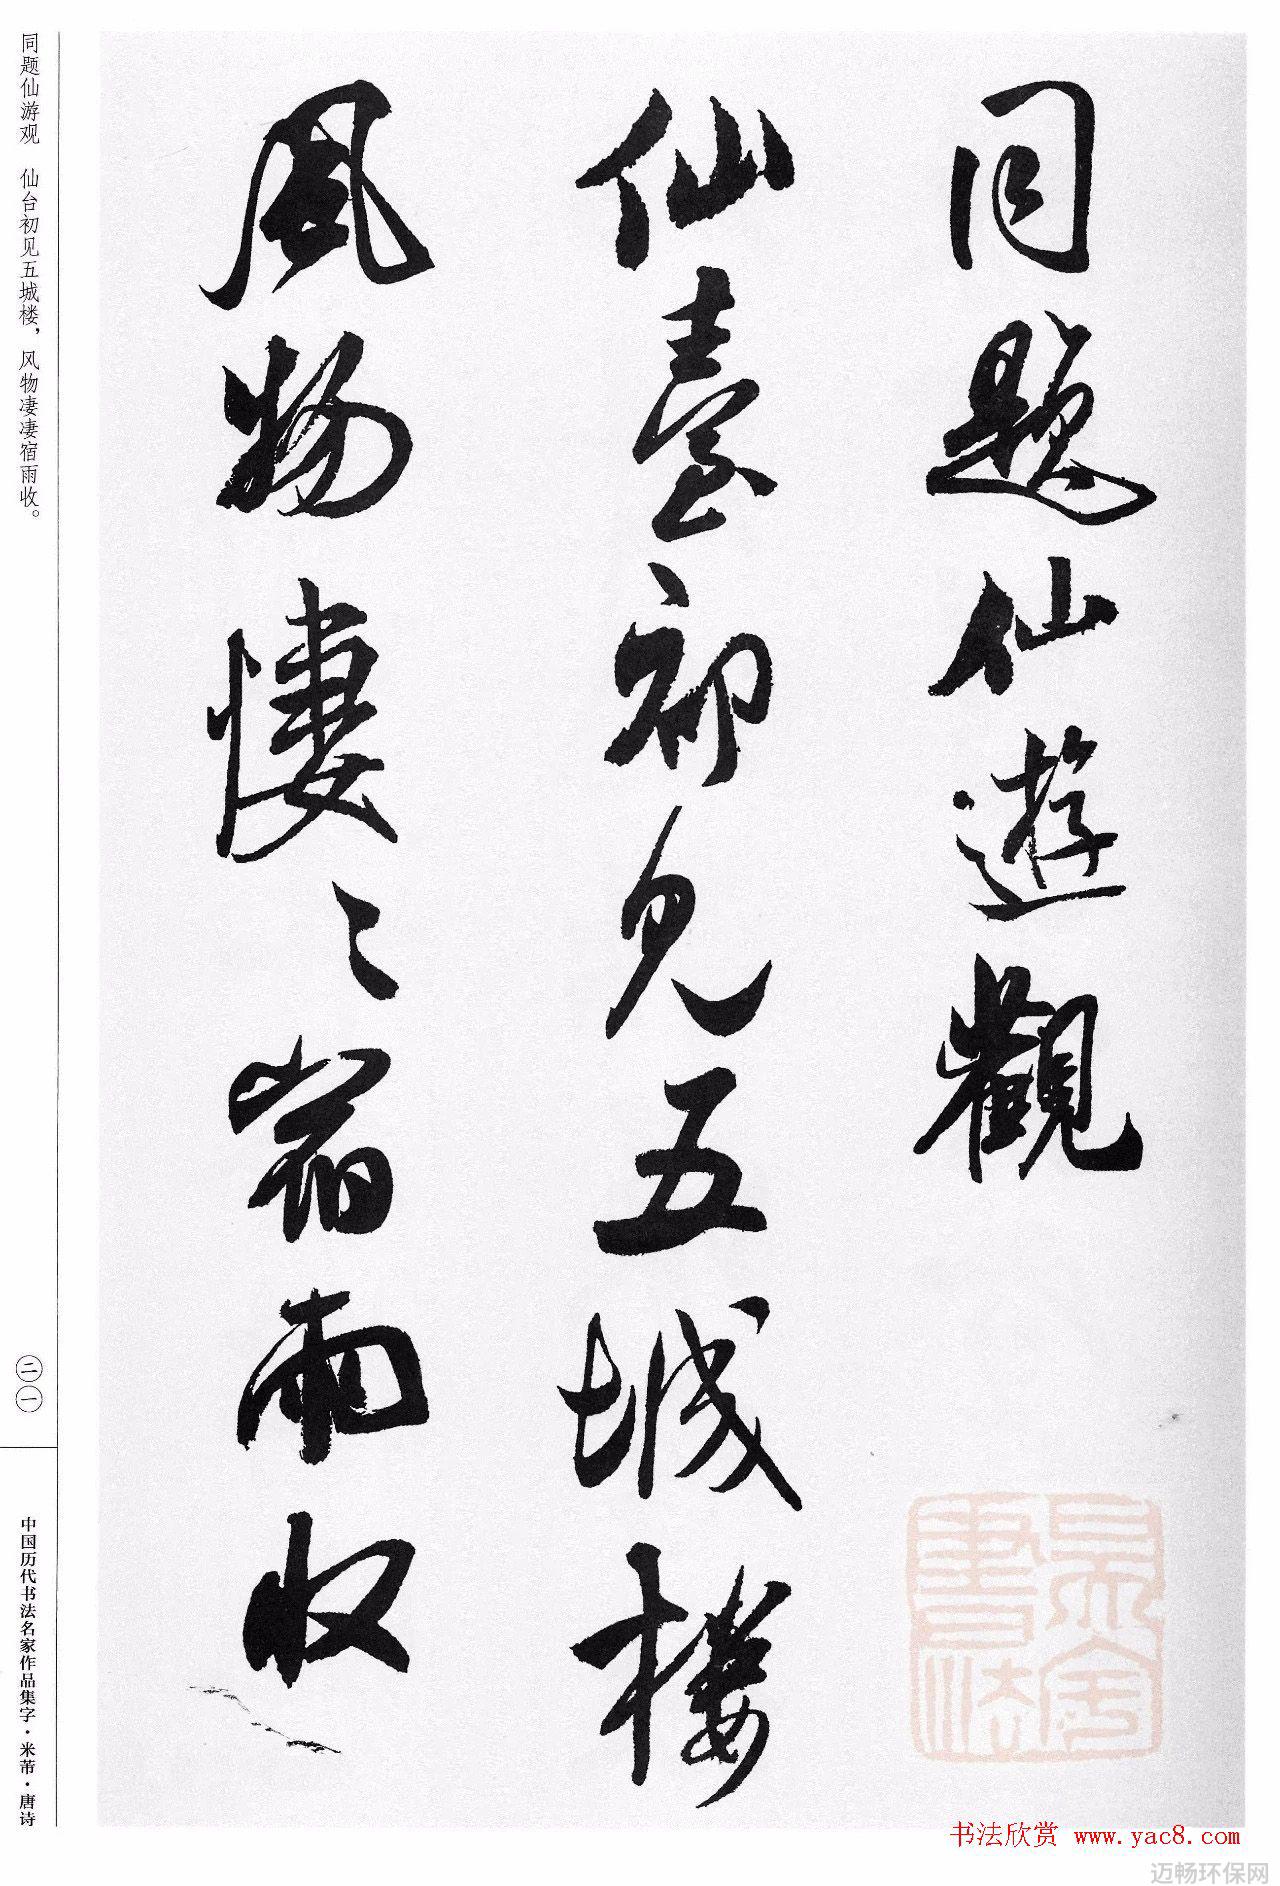 同題仙遊觀
仙臺初見五城樓
風物悽〻宿雨收
同题仙游观　仙台初见五城楼，风物凄凄宿雨收。
二一
中国历代书法名家作品集字·米芾·唐诗
书法欣赏 www.yac8.com
迈畅环保网